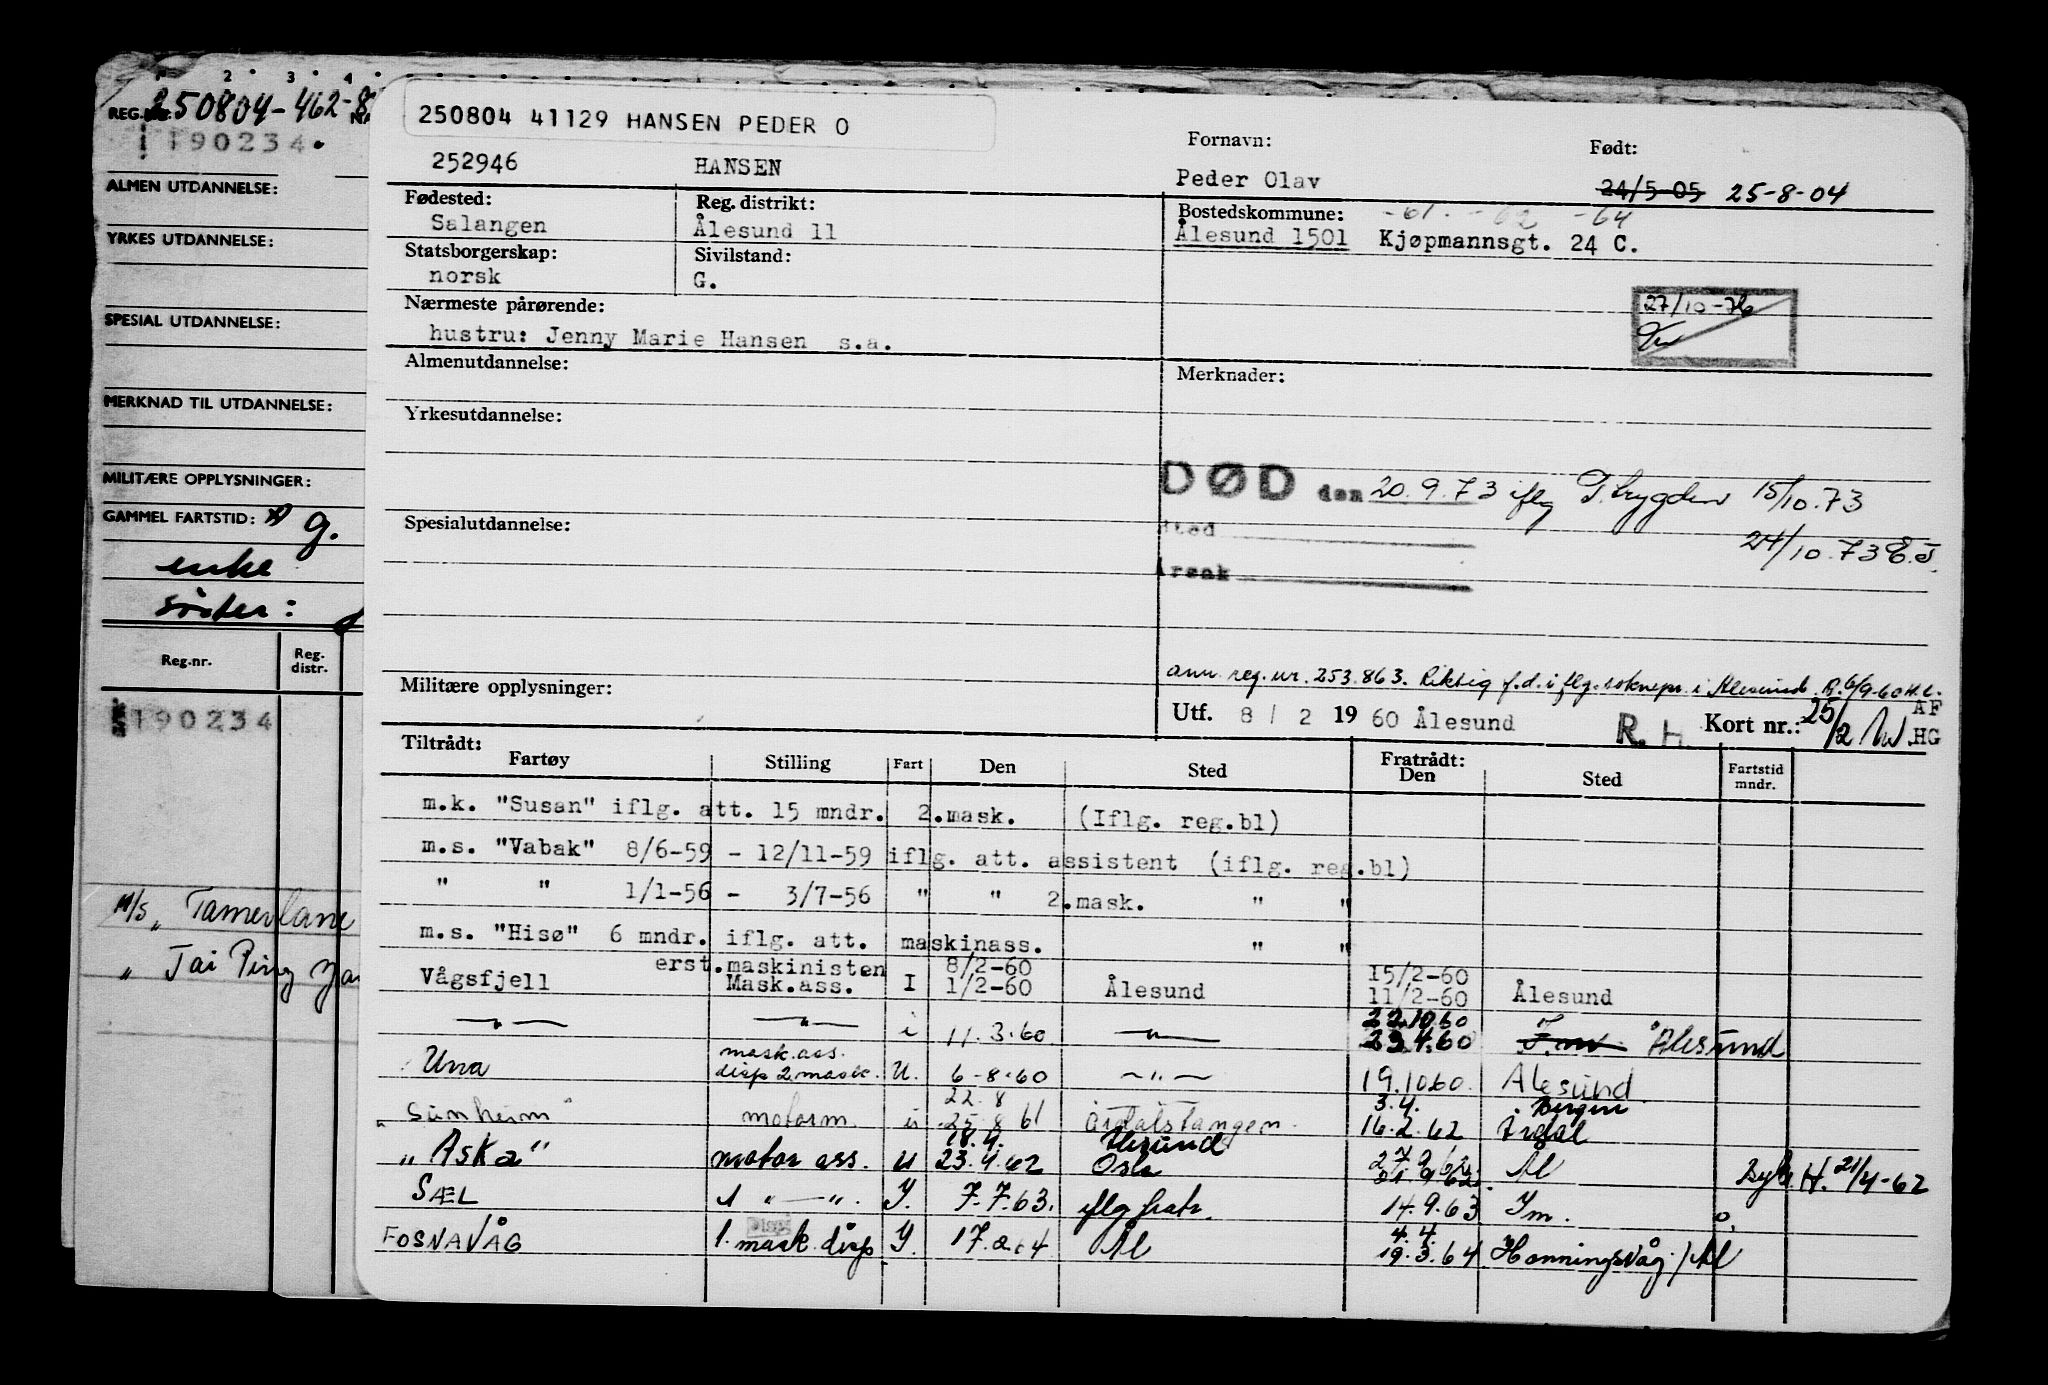 1 2 3 4
REG.NR. 250804-462-8
190234.
ALMEN UTDANNELSE:
YRKES UTDANNELSE:
SPESIAL UTDANNELSE:
MERKNAD TIL UTDANNELSE:
MILITÆRE OPPLYSNINGER:
GAMMEL FARTSTID: g.
enke
søster:
Reg.nr. Reg. distr.
190234
M/S „ Tamerlane
„ Tai Ping
250804 41129 HANSEN PEDER O
252946 HANSEN
Fornavn: Peder Olav
Født: 24/5-05 25-8-04
Fødested: Salangen
Reg. distrikt: Ålesund 11
Bostedskommune: -61. -62 -64
Ålesund 1501 Kjøpmannsgt. 24 C.
Statsborgerskap: norsk
Sivilstand: G.
Nærmeste pårørende:
hustru: Jenny Marie Hansen s.a.
27/10-76
Almenutdannelse:
Merknader:
Yrkesutdannelse:
DØD den 20.9.73 iflg T.trygden 15/10.73
Spesialutdannelse:
Sted
24/10.73 E.J.
Årsak
Militære opplysninger:
ann. reg.nr. 253.863. Riktig f.d. iflg. soknepr. i Ålesund. B. 6/9-60 H.L.
Utf. 8 / 2 1960 Ålesund R.H. Kort nr.: 25/2 AF
HG
Tiltrådt: Fratrådt:
Fartøy Stilling Fart Den Sted Den Sted Fartstid mndr.
m.k. "Susan" iflg. att. 15 mndr. 2.mask. (Iflg. reg.bl)
m.s. "Vabak" 8/6-59 - 12/11-59 iflg. att. assistent (iflg. reg.bl)
" " 1/1-56 - 3/7-56 " " 2.mask. " "
m.s. "Hisø" 6 mndr. iflg. att. maskinass. " "
erst.maskinisten 8/2-60 15/2-60
Vågsfjell Mask.ass. I 1/2-60 Ålesund 11/2-60 Ålesund
22.10.60
—"— —"— i 11.3.60 —"— 29.4.60 Ålesund
mask.ass.
Una disp 2 mask. U. 6-8-60 —"— 19.10.60. Ålesund.
22.8 3.4. Bergen
"Sunheim" motorm. u 25.8 61 Årdalstangen. 16.2.62 Årdal
18.4. Ålesund 27.9.62
„Aska" motor ass. u 23.4.62 Oslo 21.9.62. Ål H. 21/4-62
SÆL 1 "—". Y. 7.7.63. iflg fratr. 14.9.63 Ym. o.
Disp
4.4.
FOSNAVÅG 1. mask. disp Y. 17.2.64 Ål 19.3.64 Honningsvåg./Ål